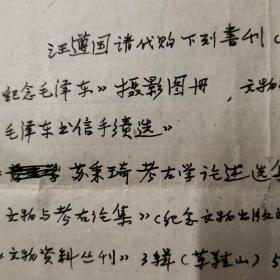 汪遵国请代购下列书刊(
纪念毛泽东》摄影图册,文物
毛泽东书信手续选》
苏秉琦考古学论述选集
文物与考古论集》(纪念文物出版社
《文物资料丛刊》3辑(草鞋山)5